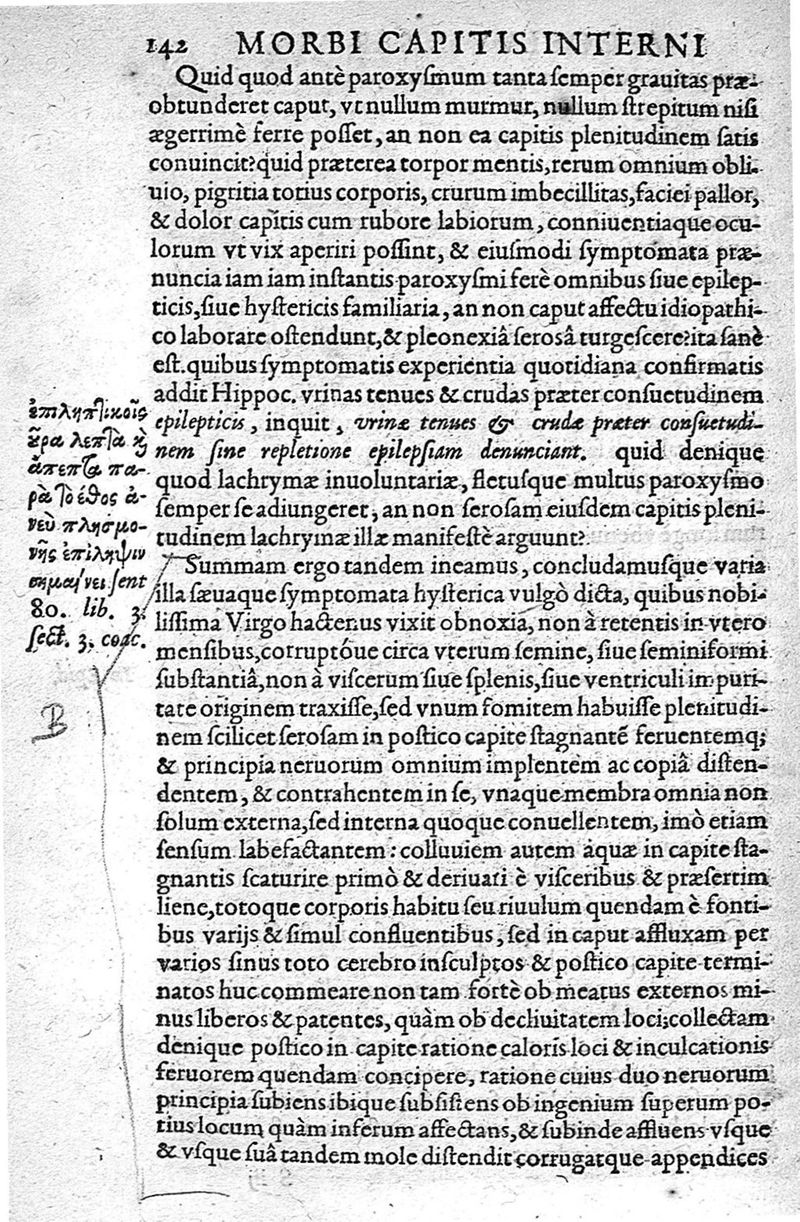 142 MORBI CAPITIS INTERNI
Quid quod antè paroxyſmum tanta ſemper grauitas præ-
obtunderet caput, vt nullum murmur, nullum ſtrepitum niſi
ægerrimè ferre poſſet, an non ea capitis plenitudinem ſatis
conuincit? quid præterea torpor mentis, rerum omnium obli-
uio, pigritia totius corporis, crurum imbecillitas, faciei pallor,
& dolor capitis cum rubore labiorum, conniuentiaque ocu-
lorum vt vix aperiri poſſint, & eiuſmodi ſymptomata præ-
nuncia iam iam inſtantis paroxyſmi ferè omnibus ſiue epilep-
ticis, ſiue hyſtericis familiaria, an non caput affectu idiopathi-
co laborare oſtendunt, & pleonexiâ ſerosâ turgeſcere? ita ſanè
eſt. quibus ſymptomatis experientia quotidiana confirmatis
addit Hippoc. vrinas tenues & crudas præter conſuetudinem
epilepticis, inquit, vrinæ tenues & crudæ præter conſuetudi-
nem ſine repletione epilepſiam denunciant. quid denique
quod lachrymæ inuoluntariæ, fletuſque multus paroxyſmo
ſemper ſe adiungeret, an non ſeroſam eiuſdem capitis pleni-
tudinem lachrymæ illæ manifeſtè arguunt?
Summam ergo tandem ineamus, concludamuſque varia
illa ſæuaque ſymptomata hyſterica vulgò dicta, quibus nobi-
liſſima Virgo hactenus vixit obnoxia, non à retentis in vtero
menſibus, corruptóue circa vterum ſemine, ſiue ſeminiformi
ſubſtantiâ, non à viſcerum ſiue ſplenis, ſiue ventriculi impuri-
tate originem traxiſſe, ſed vnum fomitem habuiſſe plenitudi-
nem ſcilicet ſeroſam in poſtico capite ſtagnantẽ feruentemq;
& principia neruorum omnium implentem ac copiâ diſten-
dentem, & contrahentem in ſe, vnaque membra omnia non
ſolum externa, ſed interna quoque conuellentem, imò etiam
ſenſum labefactantem: colluuiem autem aquæ in capite ſta-
gnantis ſcaturire primò & deriuari è viſceribus & præſertim
liene, totoque corporis habitu ſeu riuulum quendam è fonti-
bus varijs & ſimul confluentibus, ſed in caput affluxam per
varios ſinus toto cerebro inſculptos & poſtico capite termi-
natos huc commeare non tam fortè ob meatus externos mi-
nus liberos & patentes, quàm ob decliuitatem loci; collectam
denique poſtico in capite ratione caloris loci & inculcationis
feruorem quendam concipere, ratione cuius duo neruorum
principia ſubiens ibique ſubſiſtens ob ingenium ſuperum po-
tius locum quàm inferum affectans, & ſubinde affluens vſque
& vſque ſuâ tandem mole diſtendit corrugatque appendices
ἐπιληπτικοῖς
ȣ̓͂ρα λεπτὰ ϗ̀
ἄπεπτα πα-
ρὰ τὸ ἔθος ἀ-
νεὺ πλησμο-
νῆς ἐπίληψιν
σημαίνει ſent
80. lib. 3.
ſect. 3. coac.
B